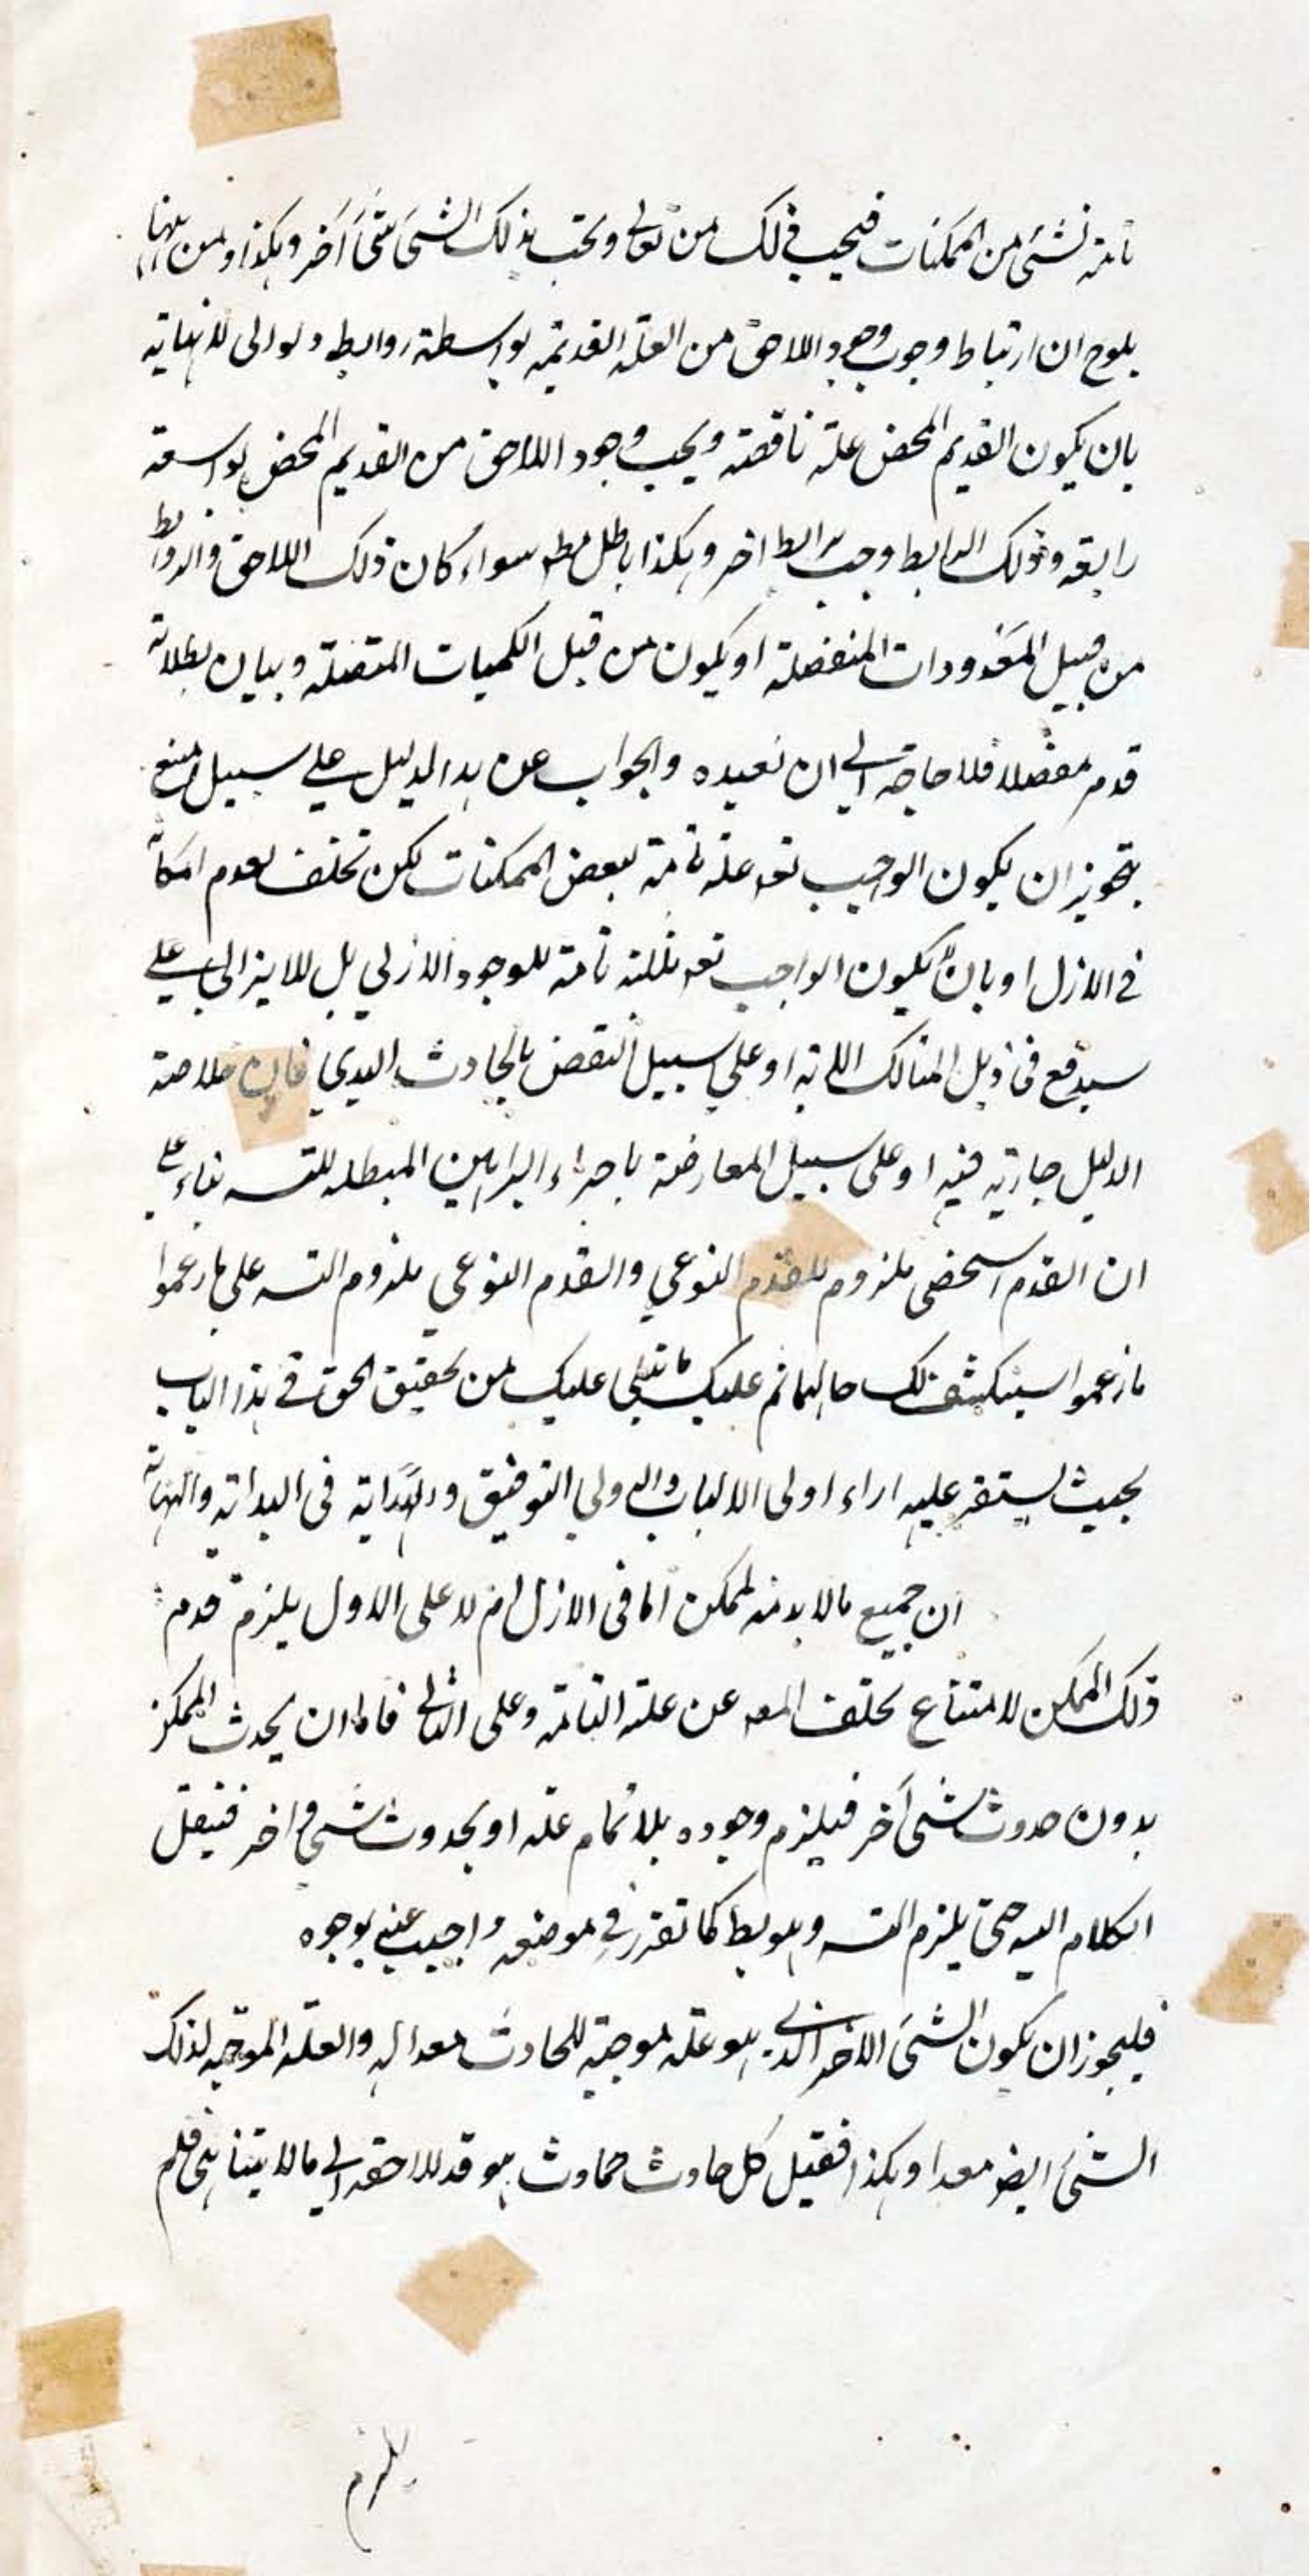 تامة لشئ من الممكنات فيجب ذلك من تعالى ويجب بذلك الشئ شئ آخر وهكذا ومن ههنا
يلوح ان ارتباط وجوب وجود اللاحق من العلة القديمة بواسطة روابط و لوالى لانهاية
بان يكون القديم المحض علة ناقصة ويجب وجود اللاحق من القديم المحض بواسطة
رابطة وذلك الرابط وجب برابط اخر وهكذا باطل مط سواء كان ذلك اللاحق والروابط
من قبيل المعدودات المنفصلة او يكون من قبل الكميات المتصلة وبيان بطلانه
قدم مفصلا فلا حاجة الى ان نعيده والجواب عن هذا الدليل على سبيل المنع
بتجويز ان يكون الواجب تعه علة تامة لبعض الممكنات لكن تخلف لعدم امكانه
فى الازل او بان يكون الواجب تعه تامة للوجود الازلي بل للايزالى على
سيدفع فى ذيل او على سبيل النقض بالحادث اليومي فان خلاصة
الدليل جارية فيه او على سبيل المعارضة باجراء البراهين المبطله للتسه بناء على
ان القدم الشخصى ملزوم للقدم النوعي والقدم النوعي ملزوم التسه على ما زعموا
ما زعموا سينكشف لك حالهما ثم عليك ما يتلى عليك من تحقيق الحق فى هذا الباب
بحيث يستقر عليه اراء اولى الالباب والله ولي التوفيق والهداية فى البداية والنهاية
ان جميع مالا بد منه لممكن اما فى الازل ام لا على الاول يلزم قدم
ذلك الممكن لامتناع تخلف المعه عن علته التامة وعلى الثانى فاما ان يحدث الممكن
بدون حدوث شئ آخر فيلزم وجوده بلا تمام علة او بحدوث شئ اخر فينقل
الكلام اليه حتى يلزم التسه وهو بط كما تقرر فى موضعه واجيب عنه بوجوه
فليجوز ان يكون الشئ الاخر الذى هو علة موجبة للحادث معدا له والعلة الموجبة لذلك
الشئ ايضه معدا وهكذا فقيل كل حادث حادث هو قد للاحقه الى مالا يتناهى فلم
يلزم